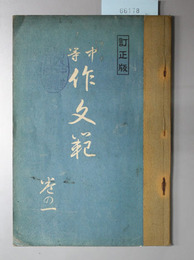 訂正版
中等
作文範
巻の一